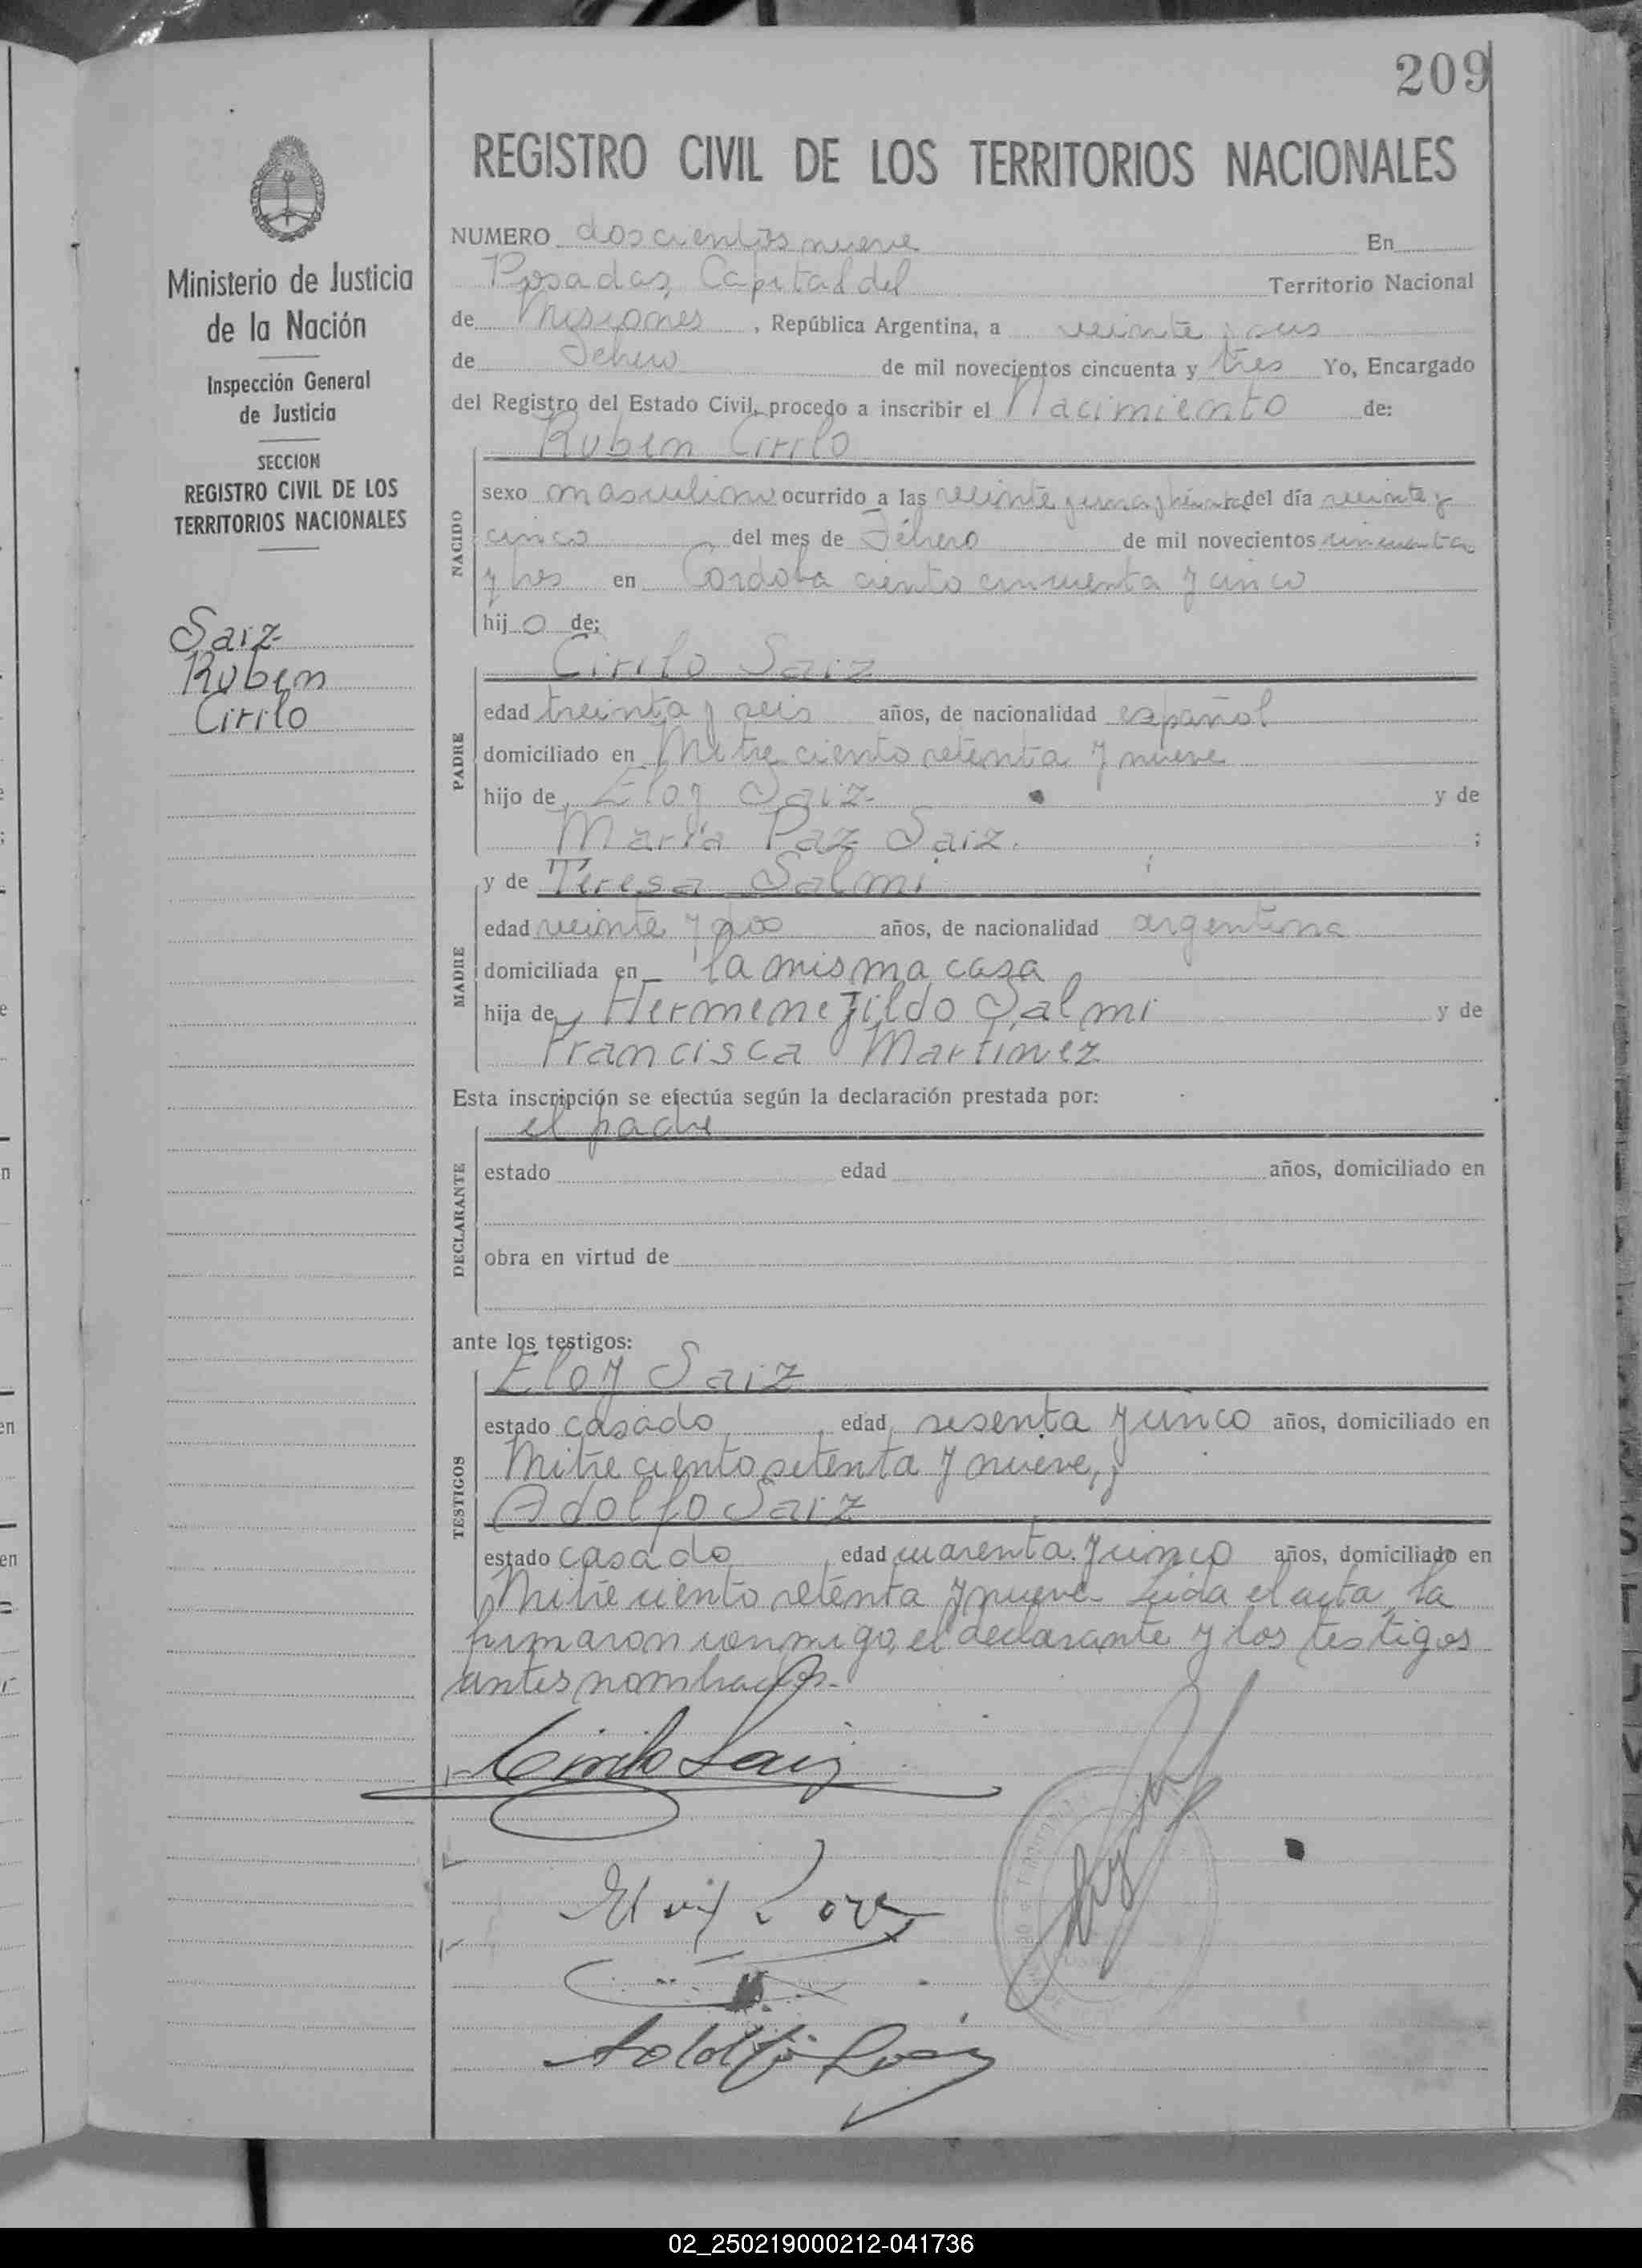 209
REGISTRO CIVIL DE LOS TERRITORIOS NACIONALES
Ministerio de Justicia
de la Nación
Inspección General
de Justicia
SECCION
REGISTRO CIVIL DE LOS
TERRITORIOS NACIONALES
Saiz
Ruben
Cirilo
NUMERO doscientos nueve En
Posadas, Capital del Territorio Nacional
de Misiones, República Argentina, a veinte y seis
de Febrero de mil novecientos cincuenta y tres Yo, Encargado
del Registro del Estado Civil, procedo a inscribir el Nacimiento de:
Ruben Cirilo
NACIDO
sexo masculino ocurrido a las veinte y una y treinta del día veinte y
cinco del mes de Febrero de mil novecientos cincuenta
y tres en Cordoba ciento cincuenta y cinco
hijo de;
Cirilo Saiz
PADRE
edad treinta y seis años, de nacionalidad español
domiciliado en Mitre ciento setenta y nueve
hijo de Eloy Saiz y de
María Paz Saiz. ;
y de Teresa Salmi
MADRE
edad veinte y dos años, de nacionalidad argentina
domiciliada en la misma casa
hija de Hermenejildo Salmi y de
Francisca Martinez
Esta inscripción se efectúa según la declaración prestada por:
el padre
DECLARANTE
estado edad años, domiciliado en
obra en virtud de
ante los testigos:
Eloy Saiz
TESTIGOS
estado casado, edad, sesenta y cinco años, domiciliado en
Mitre ciento setenta y nueve, y
Adolfo Saiz
estado casado, edad cuarenta y cinco años, domiciliado en
Mitre ciento setenta y nueve- Leida el acta, la
firmaron conmigo, el declarante y los testigos
antes nombrados.-
Cirilo Saiz
Adolfo Saiz
02_250219000212-041736